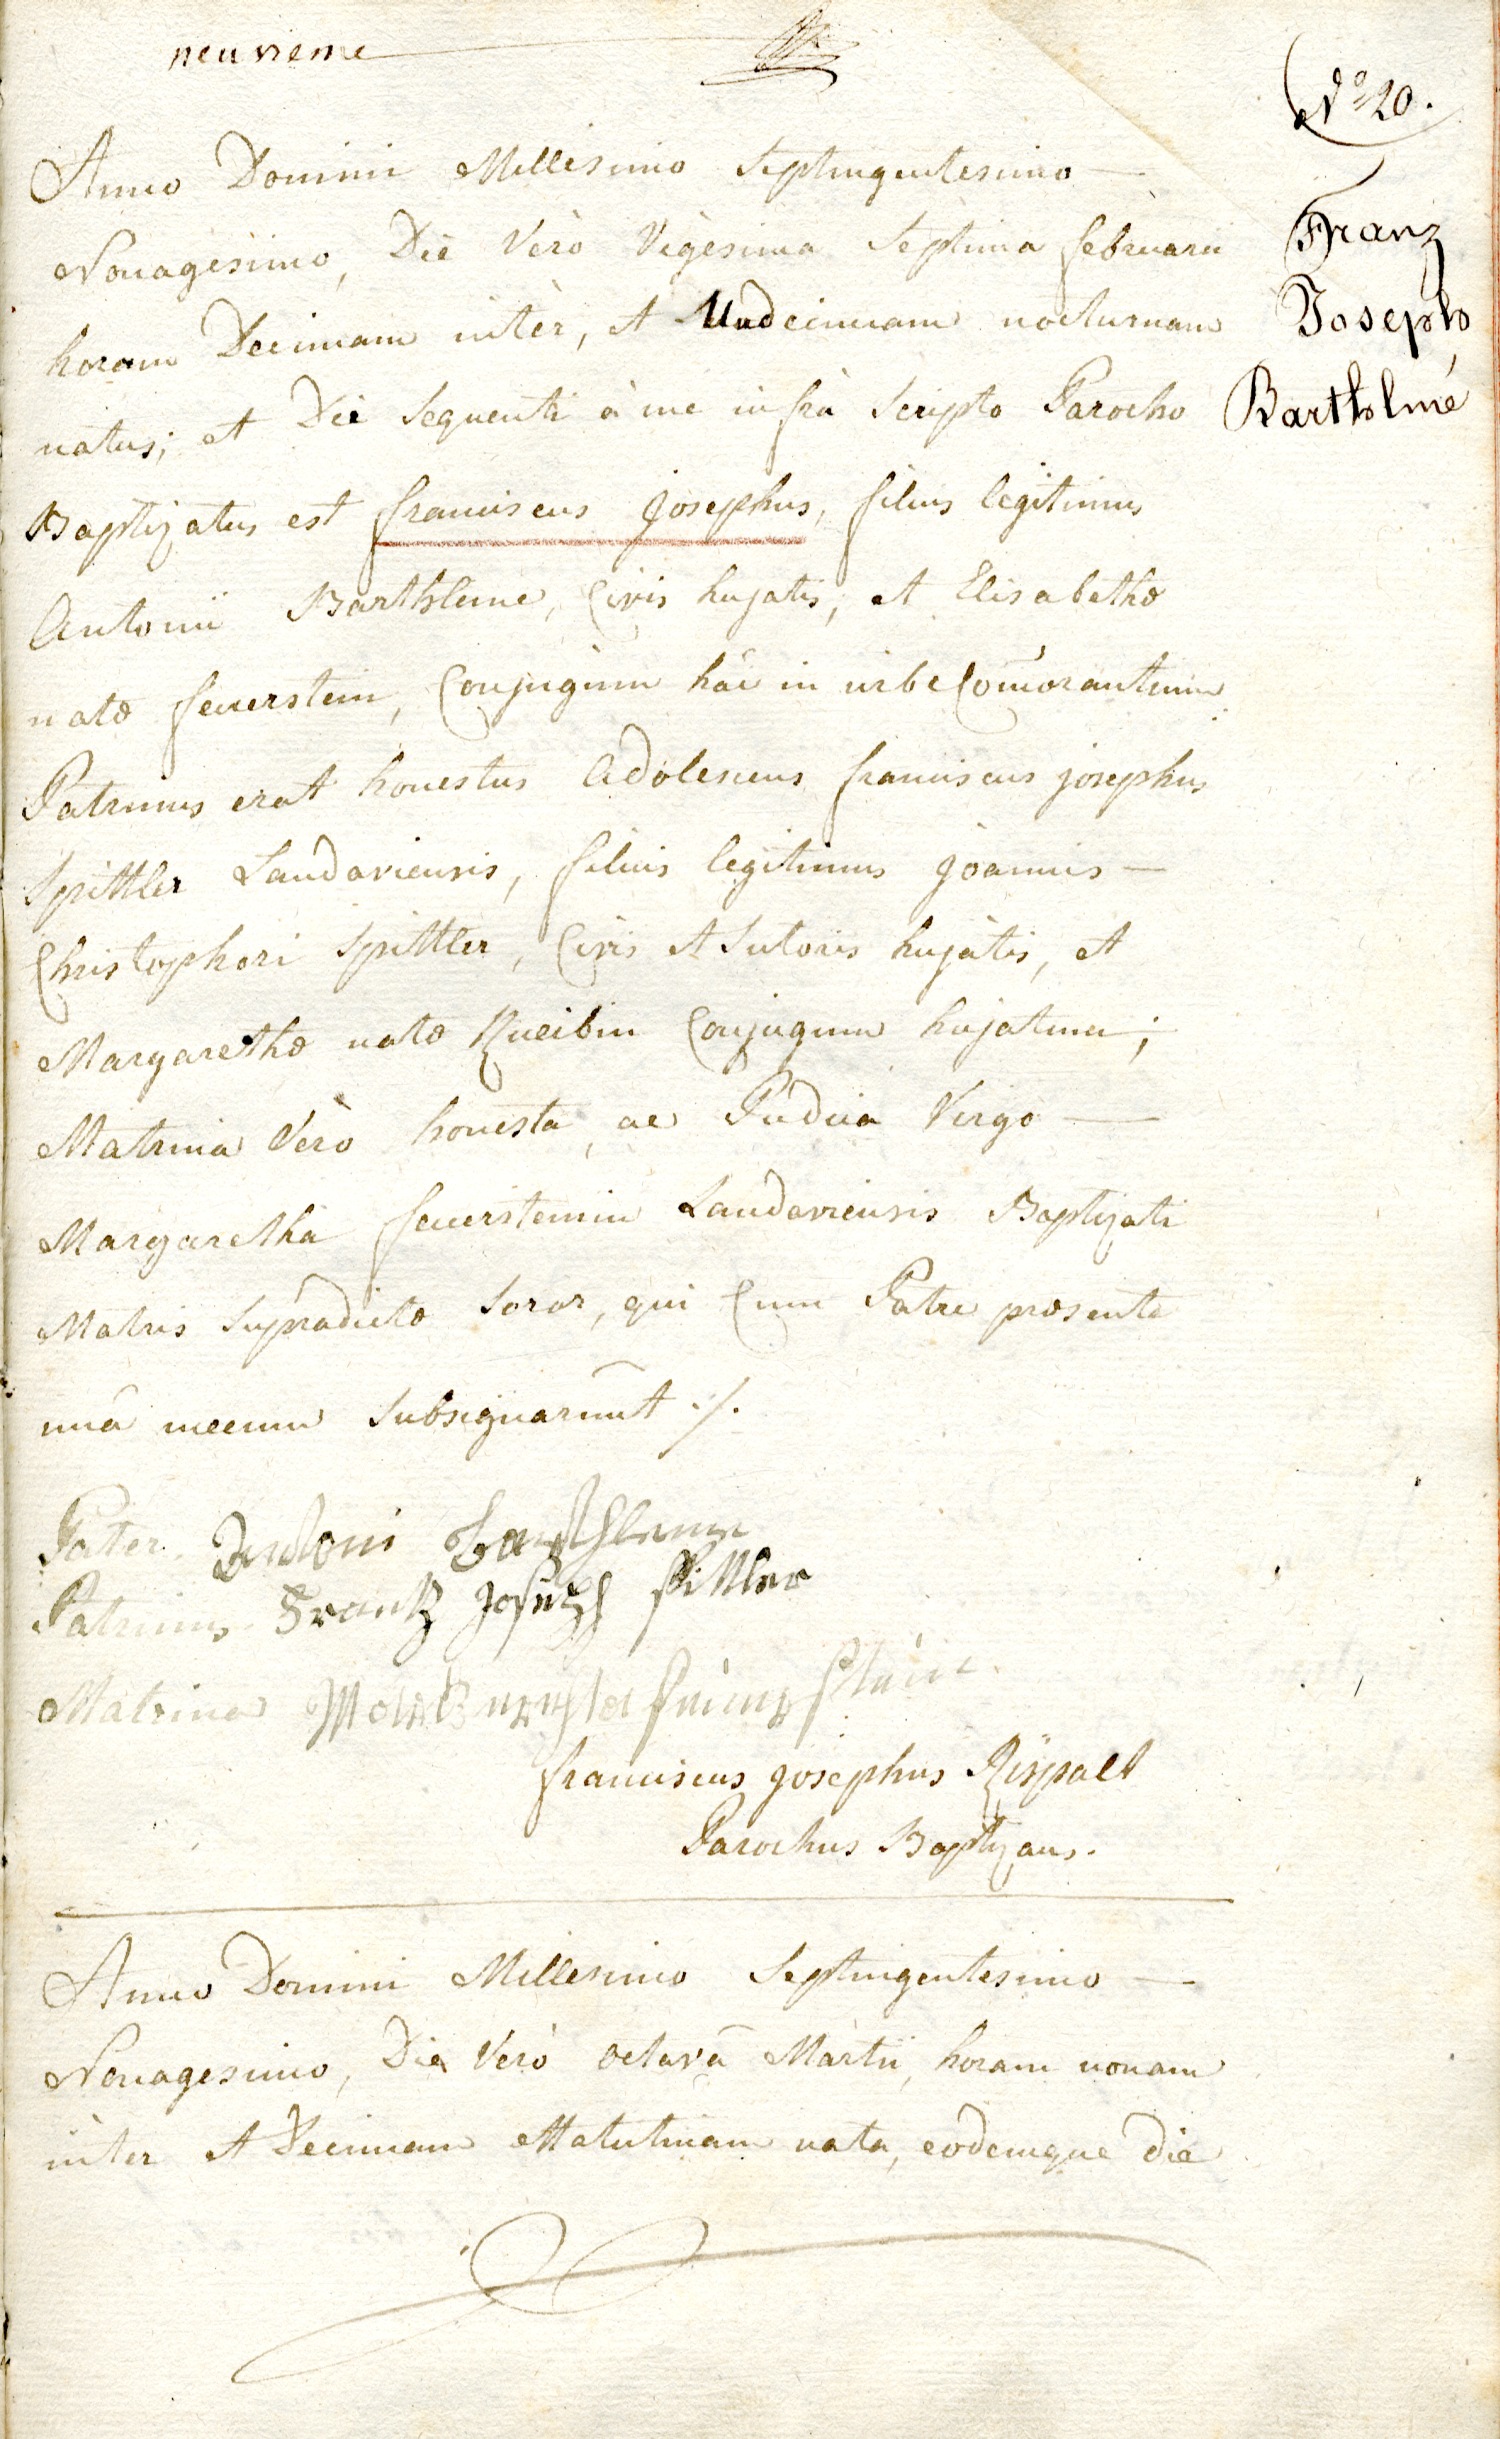 neuvieme
No 20.
Anno Domini Millesimo Septingentesimo —
Nonagesimo, Die Verò Vigesima Septima februarii
horam Decimam inter, et Undecimam nocturnam
natus; et Die sequenti à me infrà Scripto Parocho
Baptizatus est franciscus josephus, filius legitimus
Antonii Barthleme, Civis hujatis; et Elisabethæ
natæ feuerstein, Conjugum hâc in urbe Com̄orantium.
Patrinus erat honestus Adolescens franciscus josephus
Spittler Landaviensis, filius legitimus joannis —
Christophori Spittler, Civis et Sutoris hujatis, et
Margarethæ natæ Kueibin Conjugum hujatium;
Matrina Verò honesta, ac Pudica Virgo —
Margaretha feuersteinin Landaviensis Baptizati
Matris Supradictæ Soror, qui Cum Patre præsente
unâ mecum Subsignarunt ./.
Franz
Joseph
Bartholmé
Pater. Andoni Barthleme
Patrinus Frantz Joseph Spittler
Matrina
franciscus josephus Rispalt
Parochus Baptizans.
Anno Domini Millesimo Septingentesimo —
Nonagesimo, Die Verò octavâ Martii, horam nonam
inter et Decimam Matutinam nata, eodemque die